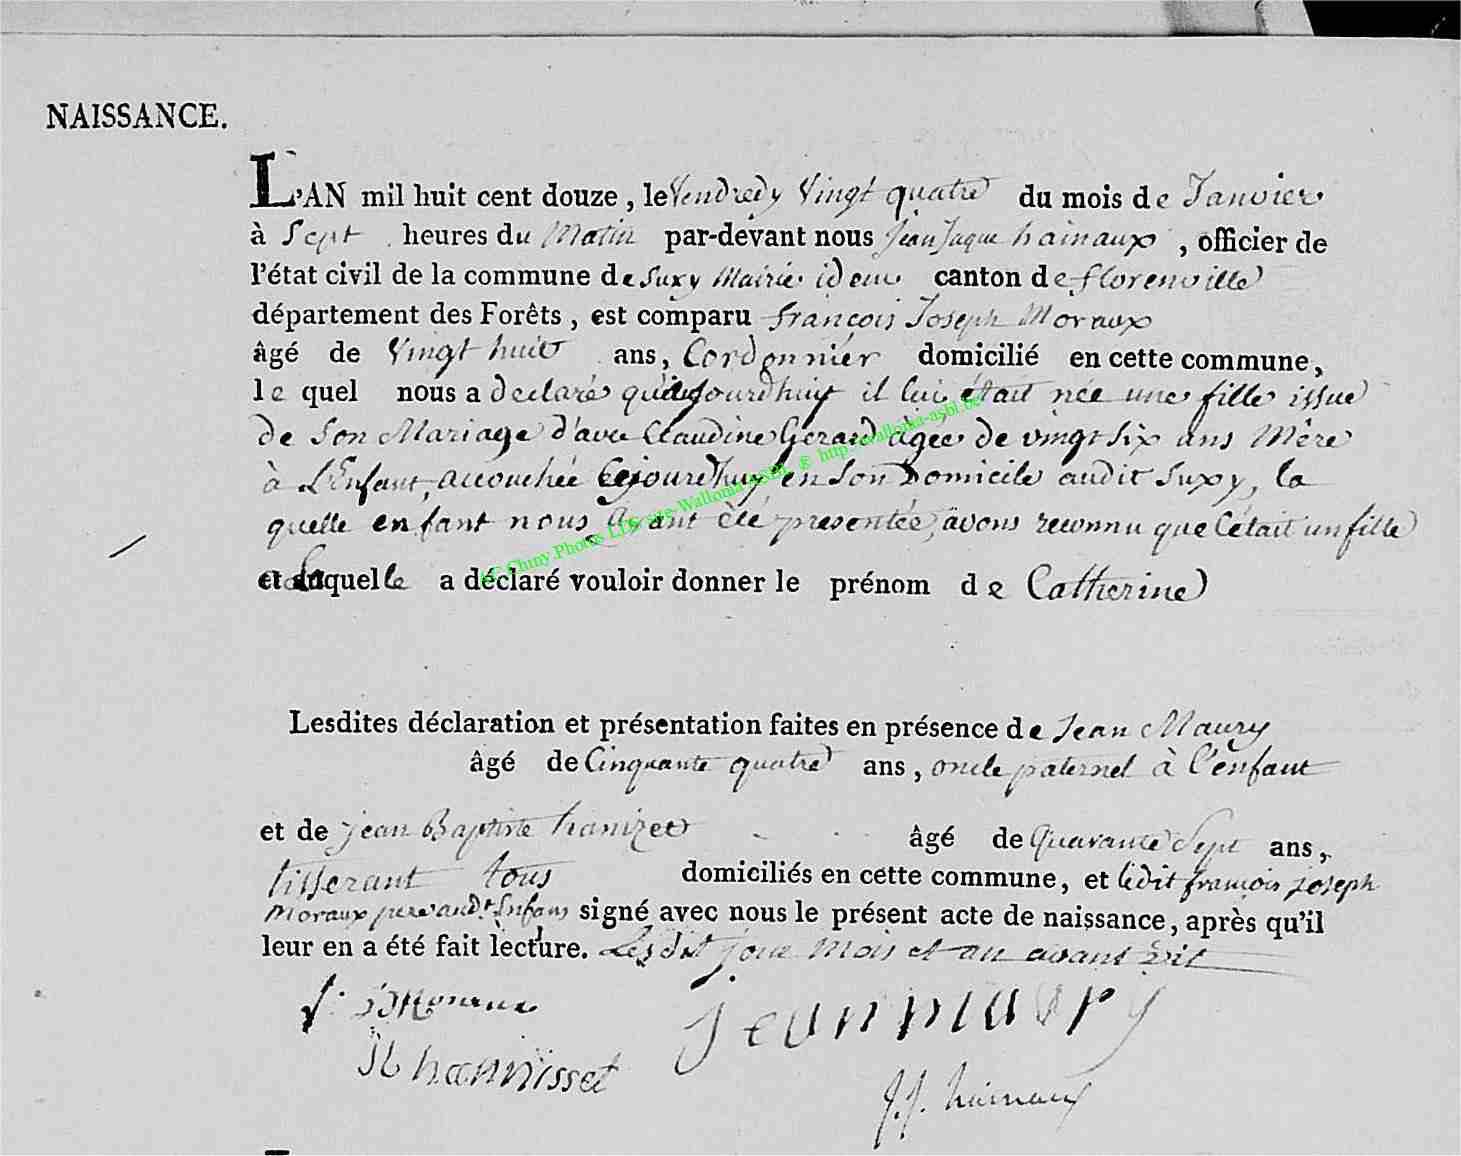 NAISSANCE.
L'AN mil huit cent douze, le Vendredy Vingt quatre du mois de Janvier
à Sept heures du Matin par-devant nous Jean Jaque hainaux, officier de
l'état civil de la commune de Suxy Mairie idem canton de florenville
département des Forêts, est comparu françois Joseph Moraux
âgé de Vingt huit ans, Cordonnier domicilié en cette commune,
le quel nous a declaré qu'aujourdhuy il lui était née une fille issue
de Son Mariage d'avec Claudine Gerard âgée de vingt six ans Mère
à L'Enfant, accouchée Cejourdhuy en Son Domicile audit Suxy, la
quelle enfant nous ayant été presentée, avons reconnu que C'était un fille
et à laquelle a déclaré vouloir donner le prénom de Catherine
Lesdites déclaration et présentation faites en présence de Jean Maury
âgé de Cinquante quatre ans, oncle paternel à l'enfant
et de jean Baptiste hanizet âgé de Quarante Sept ans,
tisserant tous domiciliés en cette commune, et ledit françois joseph
Moraux pere aud.t Enfans signé avec nous le présent acte de naissance, après qu'il
leur en a été fait lecture. Lesdit jour Mois et an avant dit
f. J Moraux
jean maury
JB hannisset
J. J. hainaux
AC Chiny.Photos LDS.site Wallonia ASBL © http://wallonia-asbl.be